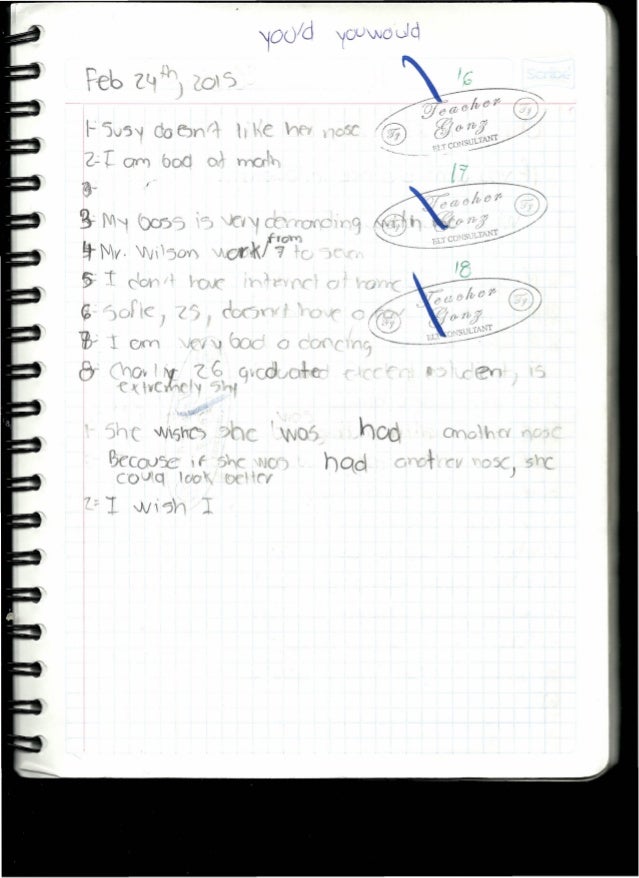 you'd you would
Feb 24th, 2015
16
Scribe
Teacher
Tg Gonz Tg
ELT CONSULTANT
1- Susy doesn't like her nose
2- I am bad at math
17
Teacher
Gonz Tg
ELT CONSULTANT
3 My boss is very demanding with
4 Mr. Wilson work from 7 to seven
18
5 I don't have internet at home
Teacher Tg
Gonz
CONSULTANT
6- Sofie, 25, doesn't have a
7- I am very bad a dancing
8- Charly 26 graduated student, is
extremely shy
1- She wishes she was had another nose
Because if she was had another nose, she
could look better
2- I wish I